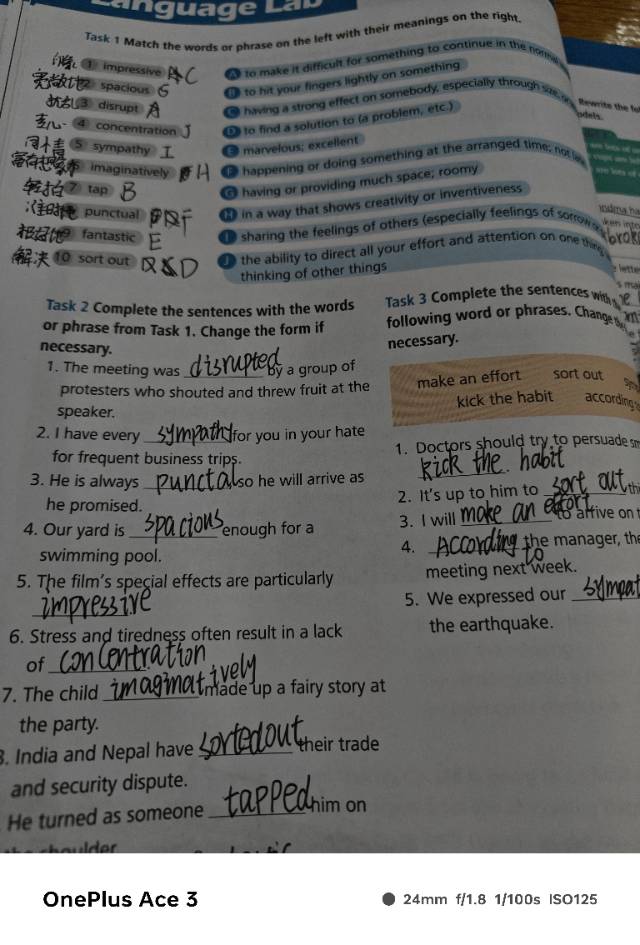 Language Lab
Task 1 Match the words or phrase on the left with their meanings on the right.
1 impressive C
A to make it difficult for something to continue in the normal
宽敞地 2 spacious G
B to hit your fingers lightly on something
扰乱 3 disrupt A
C having a strong effect on somebody, especially through
专心 4 concentration J
D to find a solution to (a problem, etc.)
同情 5 sympathy I
E marvelous; excellent
imaginatively H
F happening or doing something at the arranged time; not
轻拍 7 tap B
G having or providing much space; roomy
准时 punctual F
H in a way that shows creativity or inventiveness
极好地 fantastic E
I sharing the feelings of others (especially feelings of sorrow
解决 10 sort out D
J the ability to direct all your effort and attention on one thing
thinking of other things
Task 2 Complete the sentences with the words
or phrase from Task 1. Change the form if
necessary.
1. The meeting was disrupted by a group of
protesters who shouted and threw fruit at the
speaker.
2. I have every sympathy for you in your hate
for frequent business trips.
3. He is always punctal so he will arrive as
he promised.
4. Our yard is spacious enough for a
swimming pool.
5. The film's special effects are particularly
impressive
6. Stress and tiredness often result in a lack
of concentration
7. The child imaginatively made up a fairy story at
the party.
8. India and Nepal have sorted out their trade
and security dispute.
He turned as someone tapped him on
the shoulder
Task 3 Complete the sentences with
following word or phrases. Change
necessary.
make an effort sort out
kick the habit according
1. Doctors should try to persuade
kick the habit
2. It's up to him to sort out
3. I will make an effort to arrive on
4. According to the manager, the
meeting next week.
5. We expressed our sympat
the earthquake.
Rewrite the
OnePlus Ace 3
24mm f/1.8 1/100s ISO125